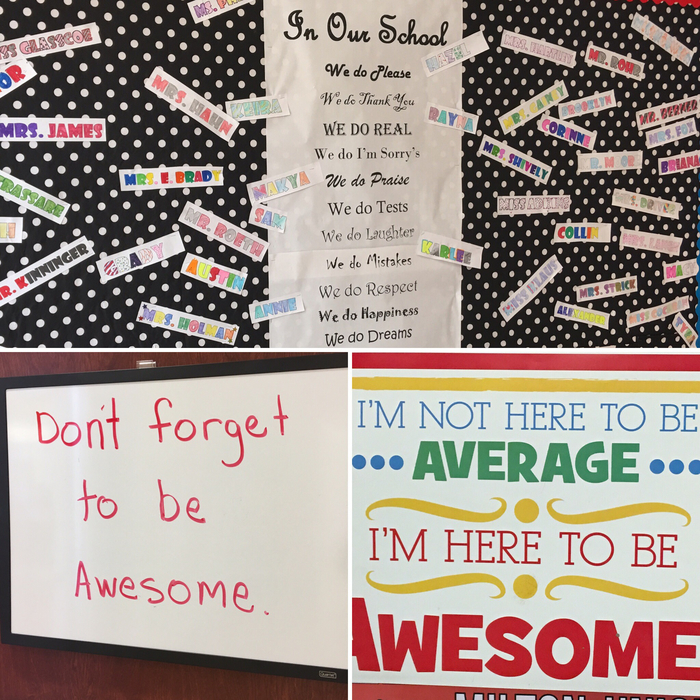 In Our School
We do Please
We do Thank You
WE DO REAL
We do I'm Sorry's
We do Praise
We do Tests
We do Laughter
We do Mistakes
We do Respect
We do Happiness
We do Dreams
GLASSCOE
OR
MRS. HAHN
MRS. JAMES
MRS. E. BRADY
MAKYA
SAM
MR. ROETH
BRADY
AUSTIN
R. KINNINGER
MRS. HOLMAN
ANNIE
HAZEL
RAYNA
KARLEE
MR. BOHR
BROOKLYN
CORINNE
MRS. SHIVELY
BRIANA
COLLIN
MISS KLAUS
MRS. STRICK
Don't forget
to be
Awesome.
I'M NOT HERE TO BE
AVERAGE
I'M HERE TO BE
AWESOME